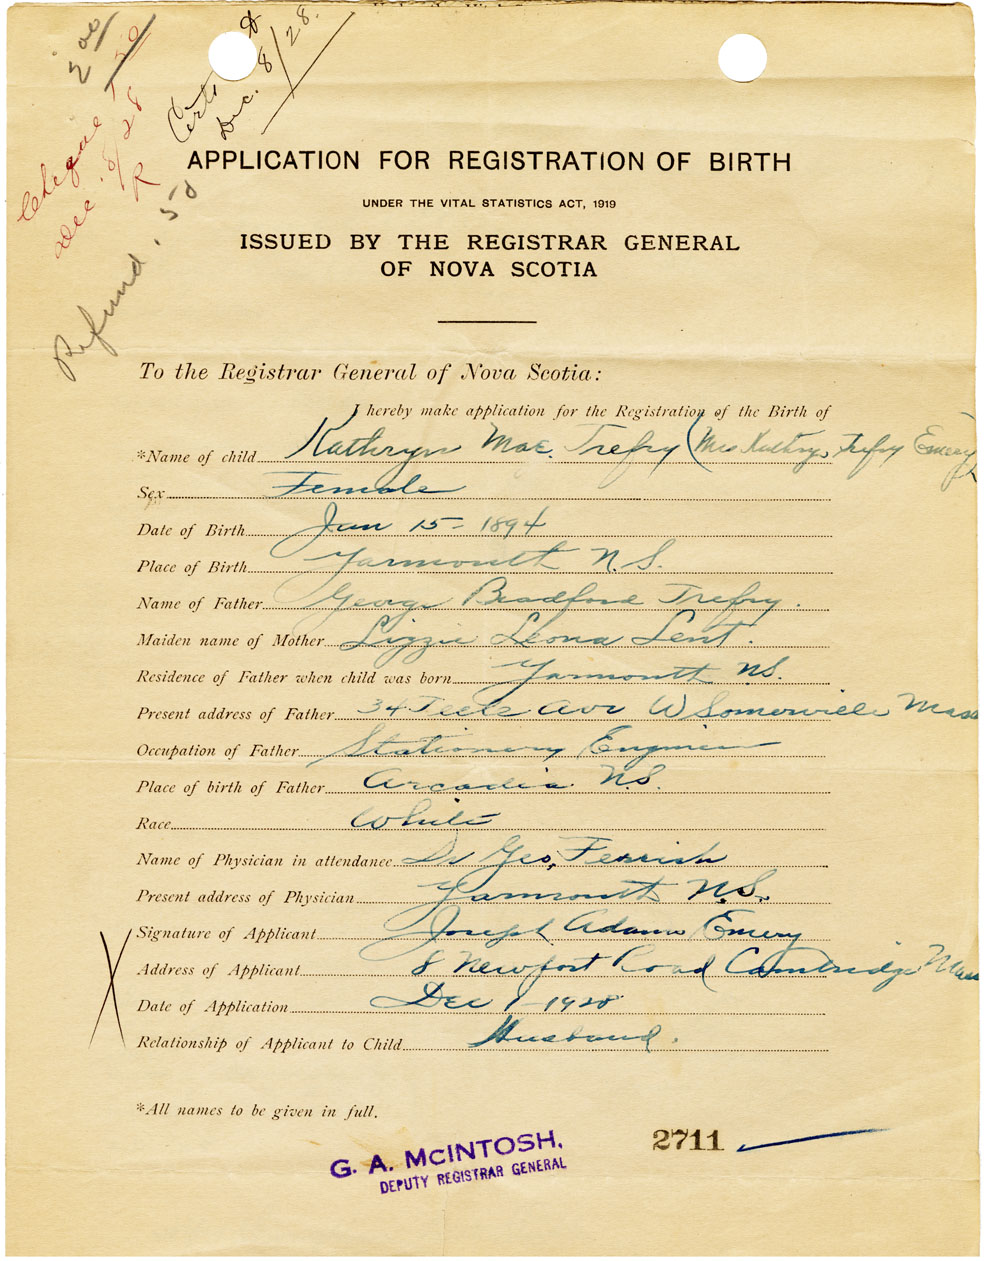 2.00
Cheque 1.50
Dec. 8/28
R
Dec. 8/28.
Refund .50
APPLICATION FOR REGISTRATION OF BIRTH
UNDER THE VITAL STATISTICS ACT, 1919
ISSUED BY THE REGISTRAR GENERAL
OF NOVA SCOTIA
To the Registrar General of Nova Scotia:
I hereby make application for the Registration of the Birth of
*Name of child Kathryn Mae. Trefry (Mrs Kathryn Trefry Emery)
Sex Female
Date of Birth Jan 15 - 1894
Place of Birth Yarmouth N.S.
Name of Father George Bradford Trefry.
Maiden name of Mother Lizzie Leona Lent.
Residence of Father when child was born Yarmouth N.S.
Present address of Father 34 Teele Ave W Somerville Mass
Occupation of Father Stationery Engineer
Place of birth of Father Arcadia N.S.
Race White
Name of Physician in attendance Dr Geo, Ferrish
Present address of Physician Yarmouth N.S.
Signature of Applicant Joseph Adams Emery
Address of Applicant 8 Newport Road Cambridge Mass
Date of Application Dec 1 - 1928
Relationship of Applicant to Child Husband.
*All names to be given in full.
2711
G. A. McINTOSH.
DEPUTY REGISTRAR GENERAL